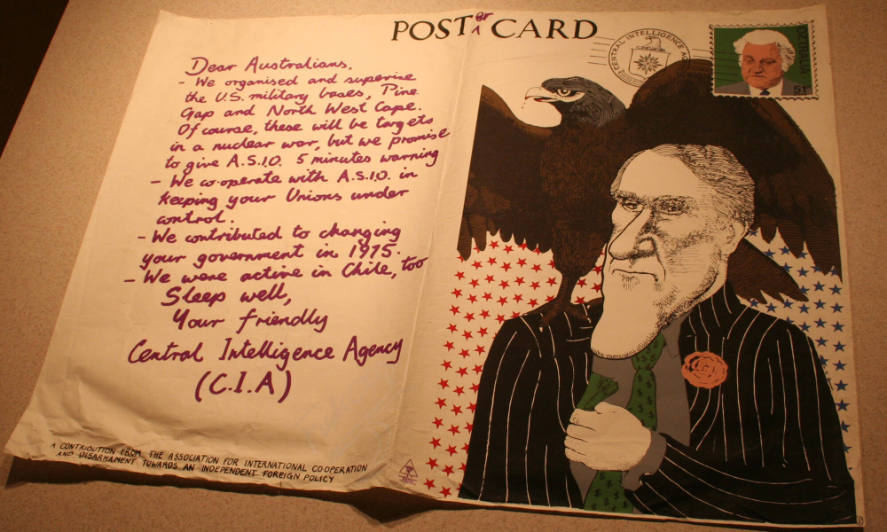 POSTER CARD
CENTRAL INTELLIGENCE
AUSTRALIA
51
Dear Australians,
- We organised and supervise
the U.S. military bases, Pine
Gap and North West Cape.
Of course, these will be targets
in a nuclear war, but we promise
to give A.S.I.O. 5 minutes warning
- We co-operate with A.S.I.O. in
keeping your Unions under
control.
- We contributed to changing
your government in 1975.
- We were active in Chile, too
Sleep well,
Your friendly
Central Intelligence Agency
(C.I.A)
A CONTRIBUTION FROM THE ASSOCIATION FOR INTERNATIONAL CO-OPERATION
AND DISARMAMENT TOWARDS AN INDEPENDENT FOREIGN POLICY